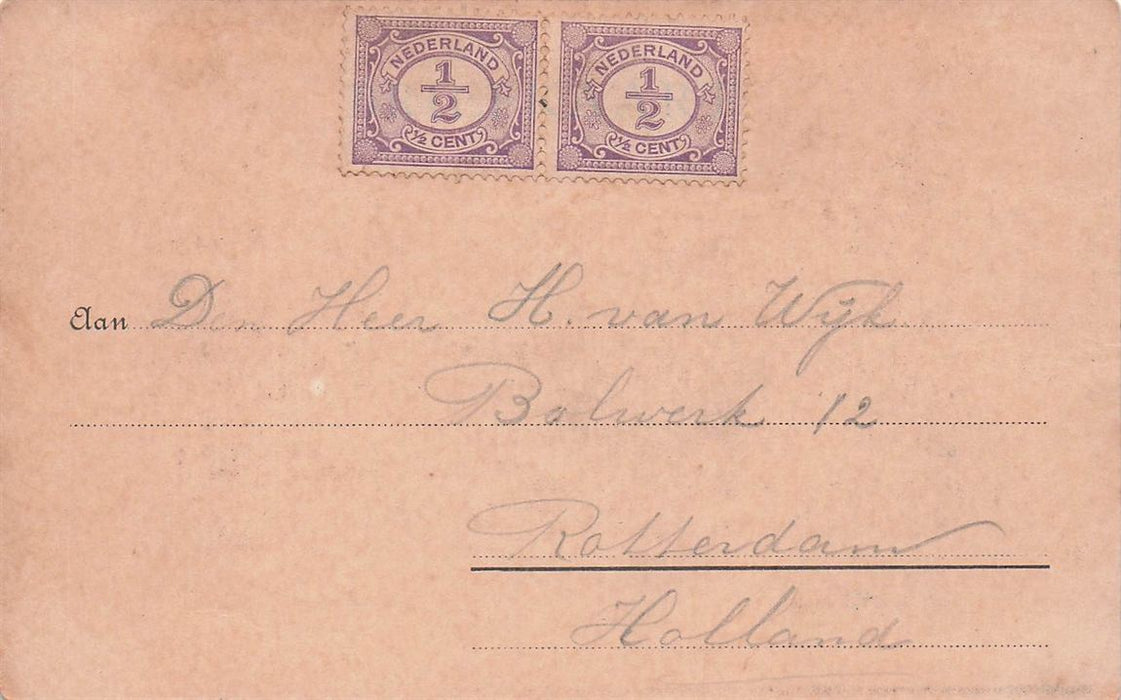 NEDERLAND NEDERLAND
1/2 1/2
½ CENT ½ CENT
Aan Den Heer H. van Wijk
Bolwerk 12
Rotterdam
Holland